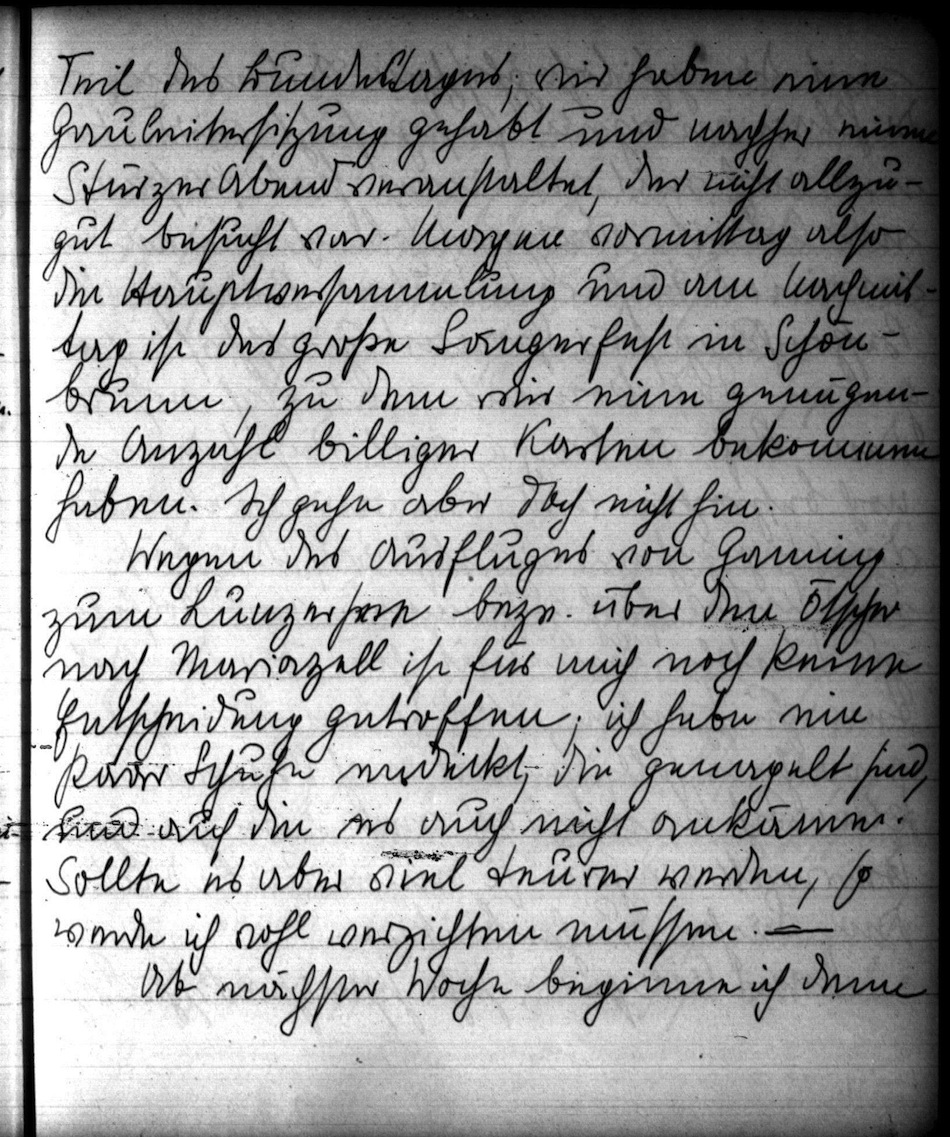 Teil des Bundestages; wir haben eine
Gauleitersitzung gehabt und nachher einen
Sturzer Abend veranstaltet, der nicht allzu-
gut besucht war. Morgen vormittag also
die Hauptversammlung und am Nachmit-
tag ist das große Sängerfest in Schön-
brunn, zu dem wir eine genügen-
de Anzahl billiger Karten bekommen
haben. Ich gehe aber doch nicht hin.
Wegen des Ausfluges von Gaming
zum Lunzersee bezw. über den Ötscher
nach Mariazell ist für mich noch keine
Entscheidung getroffen; ich habe ein
Paar Schuhe entdeckt, die genagelt sind,
und auf die es auch nicht ankäme.
Sollte es aber viel teurer werden, so
werde ich wohl verzichten müssen. —
Ab nächster Woche beginne ich dann